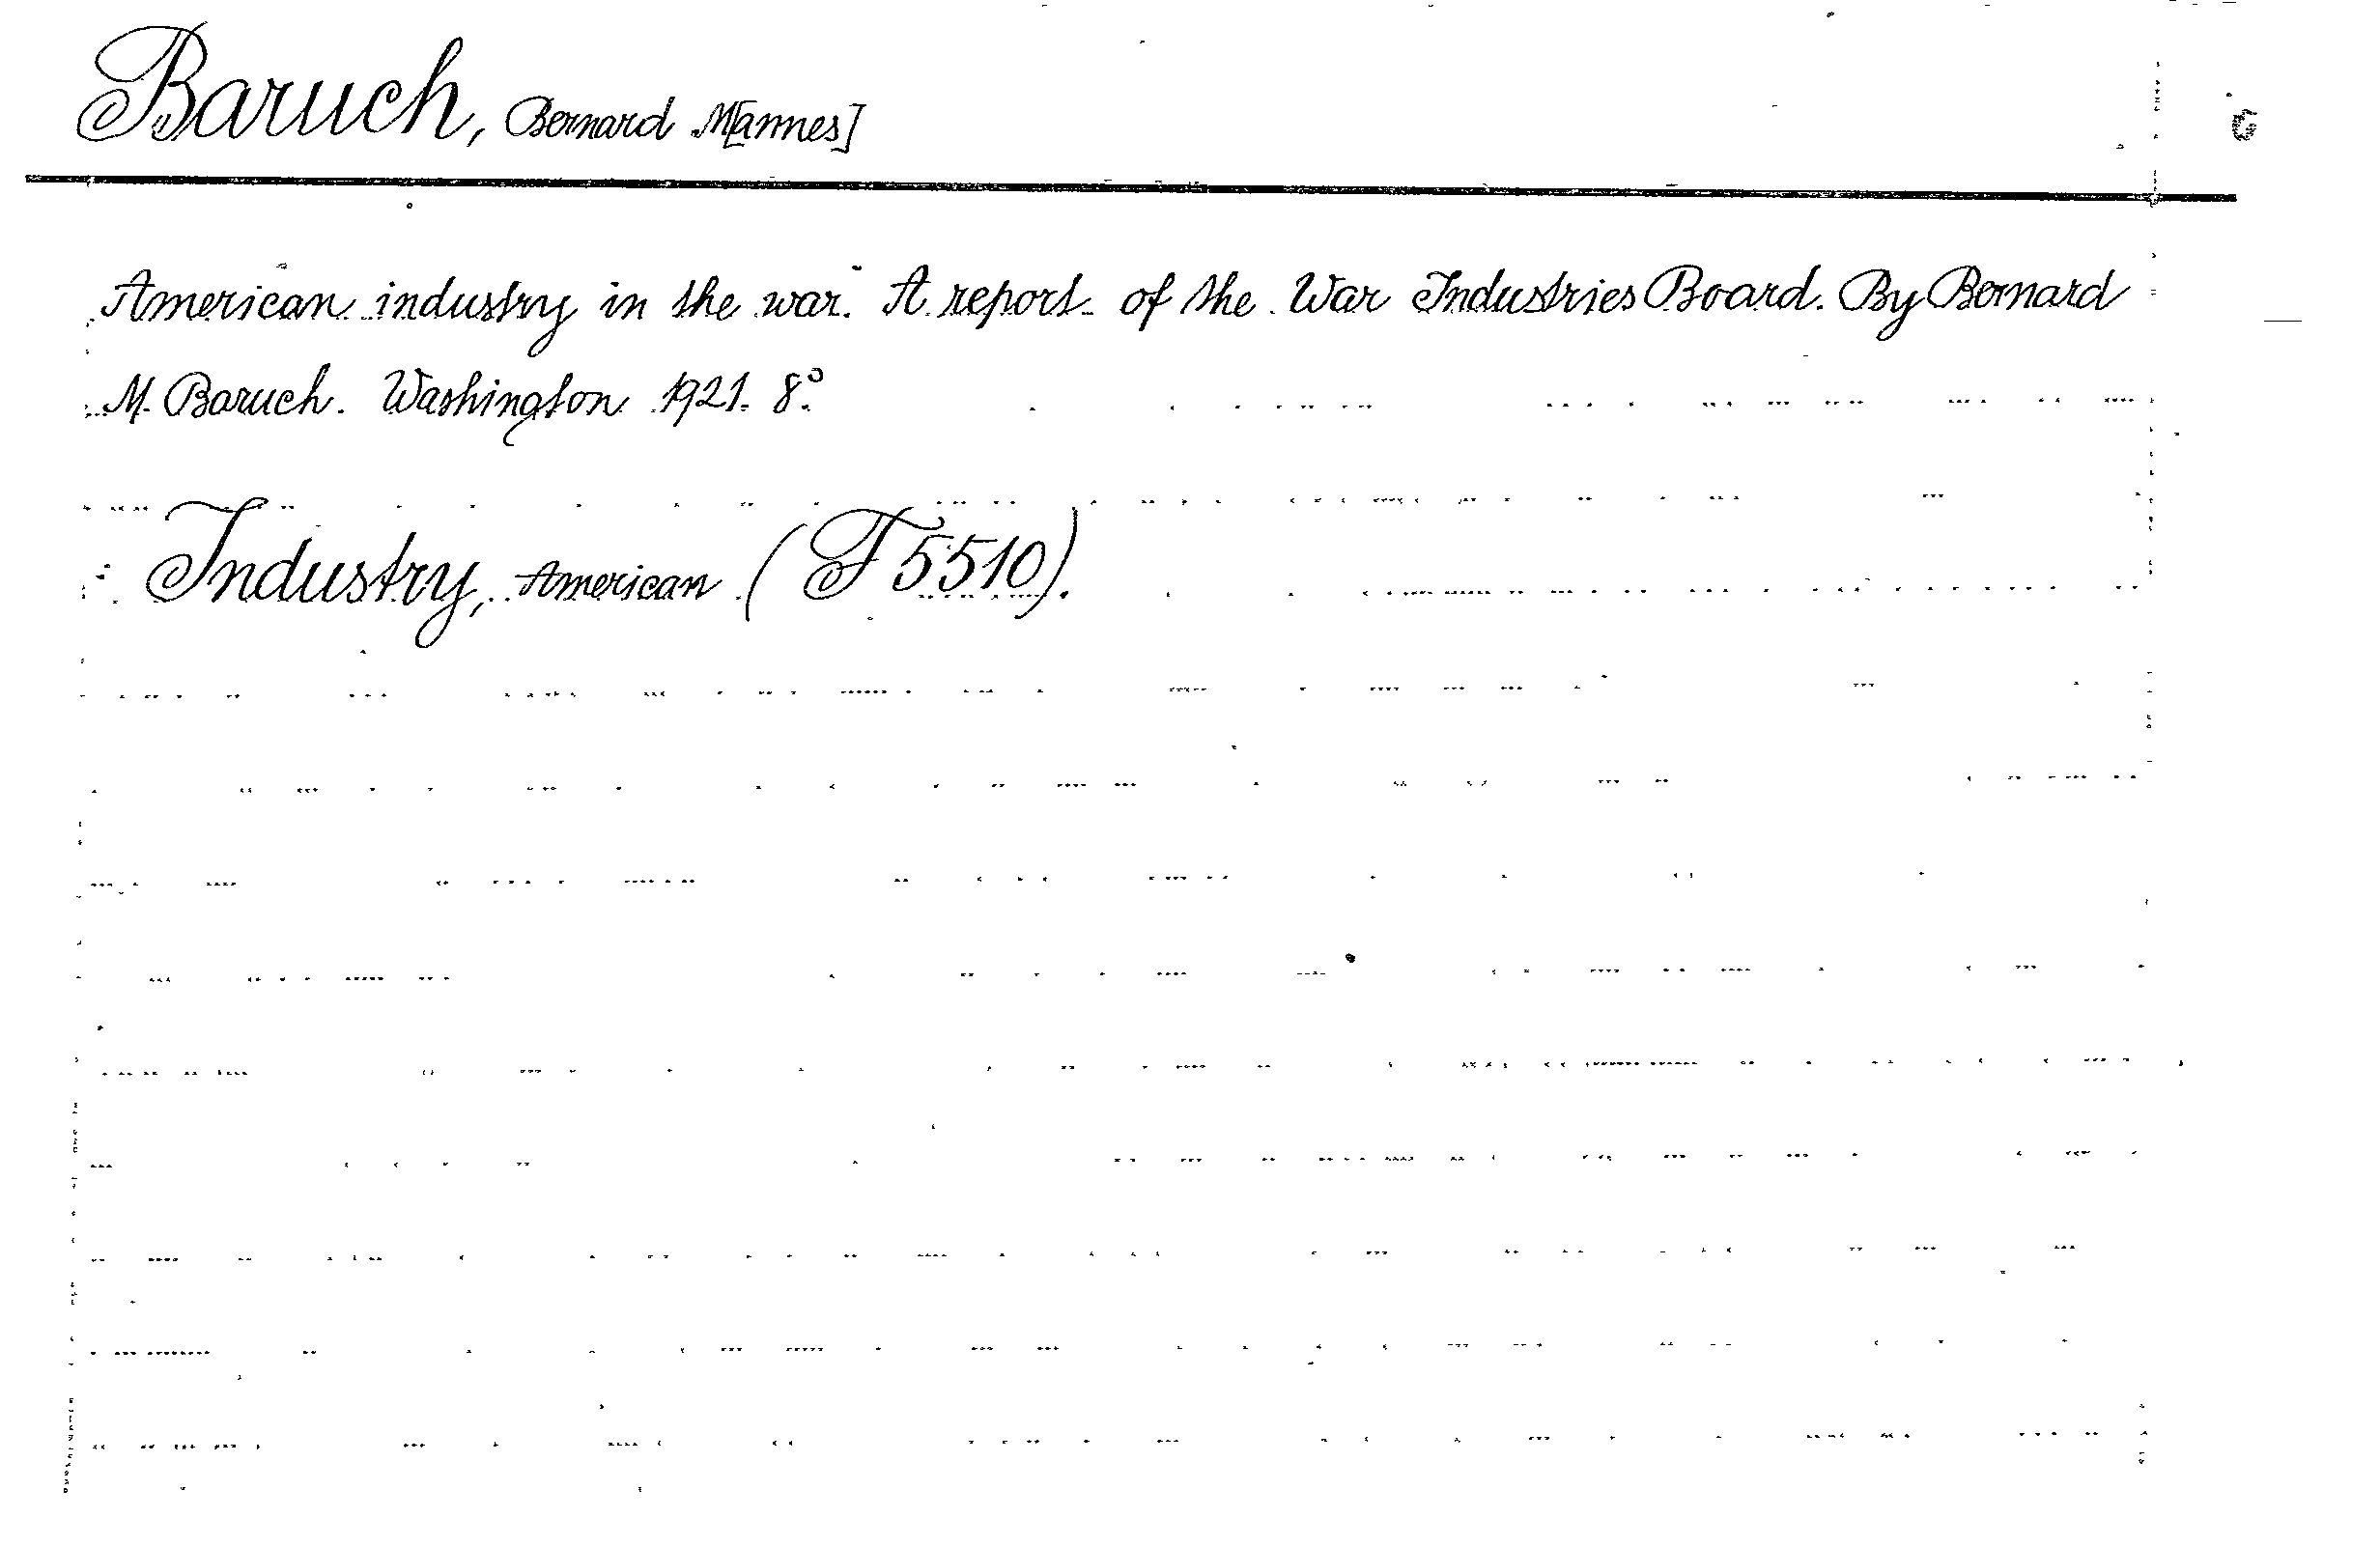 Baruch, Bernard M[annes]
American industry in the war. A report of the War Industries Board. By Bernard
M. Baruch. Washington 1921. 8°.
Industry, American (F 5510).